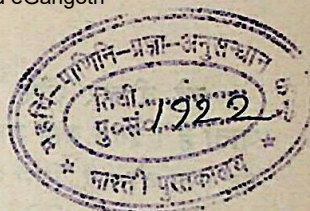 eGangotri
महर्षि-पाणिनि-प्रज्ञा-अनुसन्धान
तिथी..........
पु०सं० 1922
* भारती पुस्तकालय *